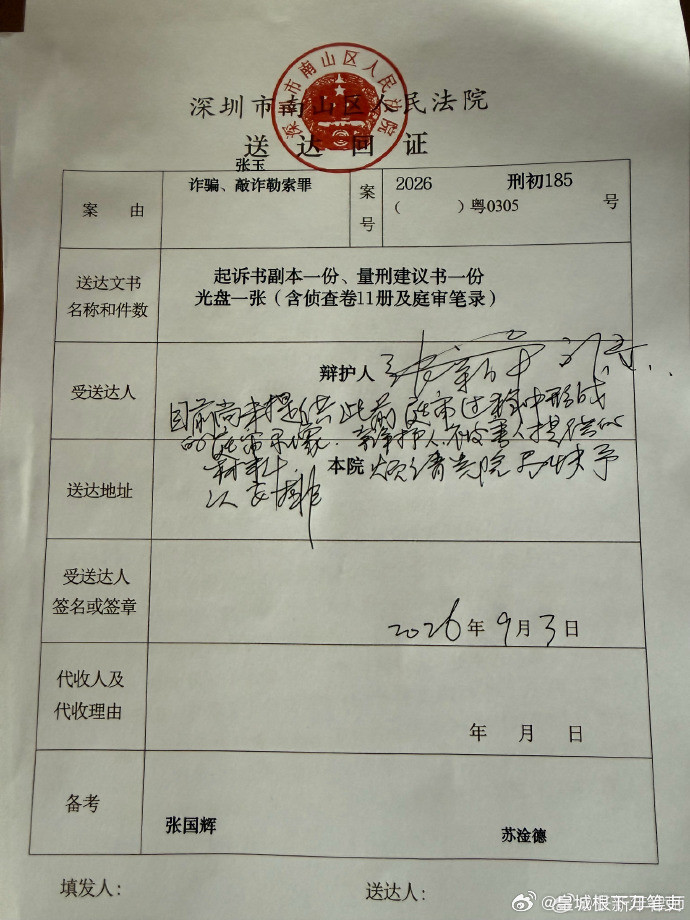 深圳市南山区人民法院
深圳市南山区人民法院
送达回证
案由
张玉
诈骗、敲诈勒索罪
案号
2026 刑初185
( )粤0305 号
送达文书
名称和件数
起诉书副本一份、量刑建议书一份
光盘一张（含侦查卷11册及庭审笔录）
受送达人
辩护人
目前尚未提供此前庭审过程中形成
的庭审录像、辩护人、被害人提供的
材料
送达地址
本院 烦请贵院尽快予
以安排
受送达人
签名或签章
2026年9月3日
代收人及
代收理由
年 月 日
备考
张国辉 苏淦德
填发人： 送达人：
@皇城根下刀笔吏